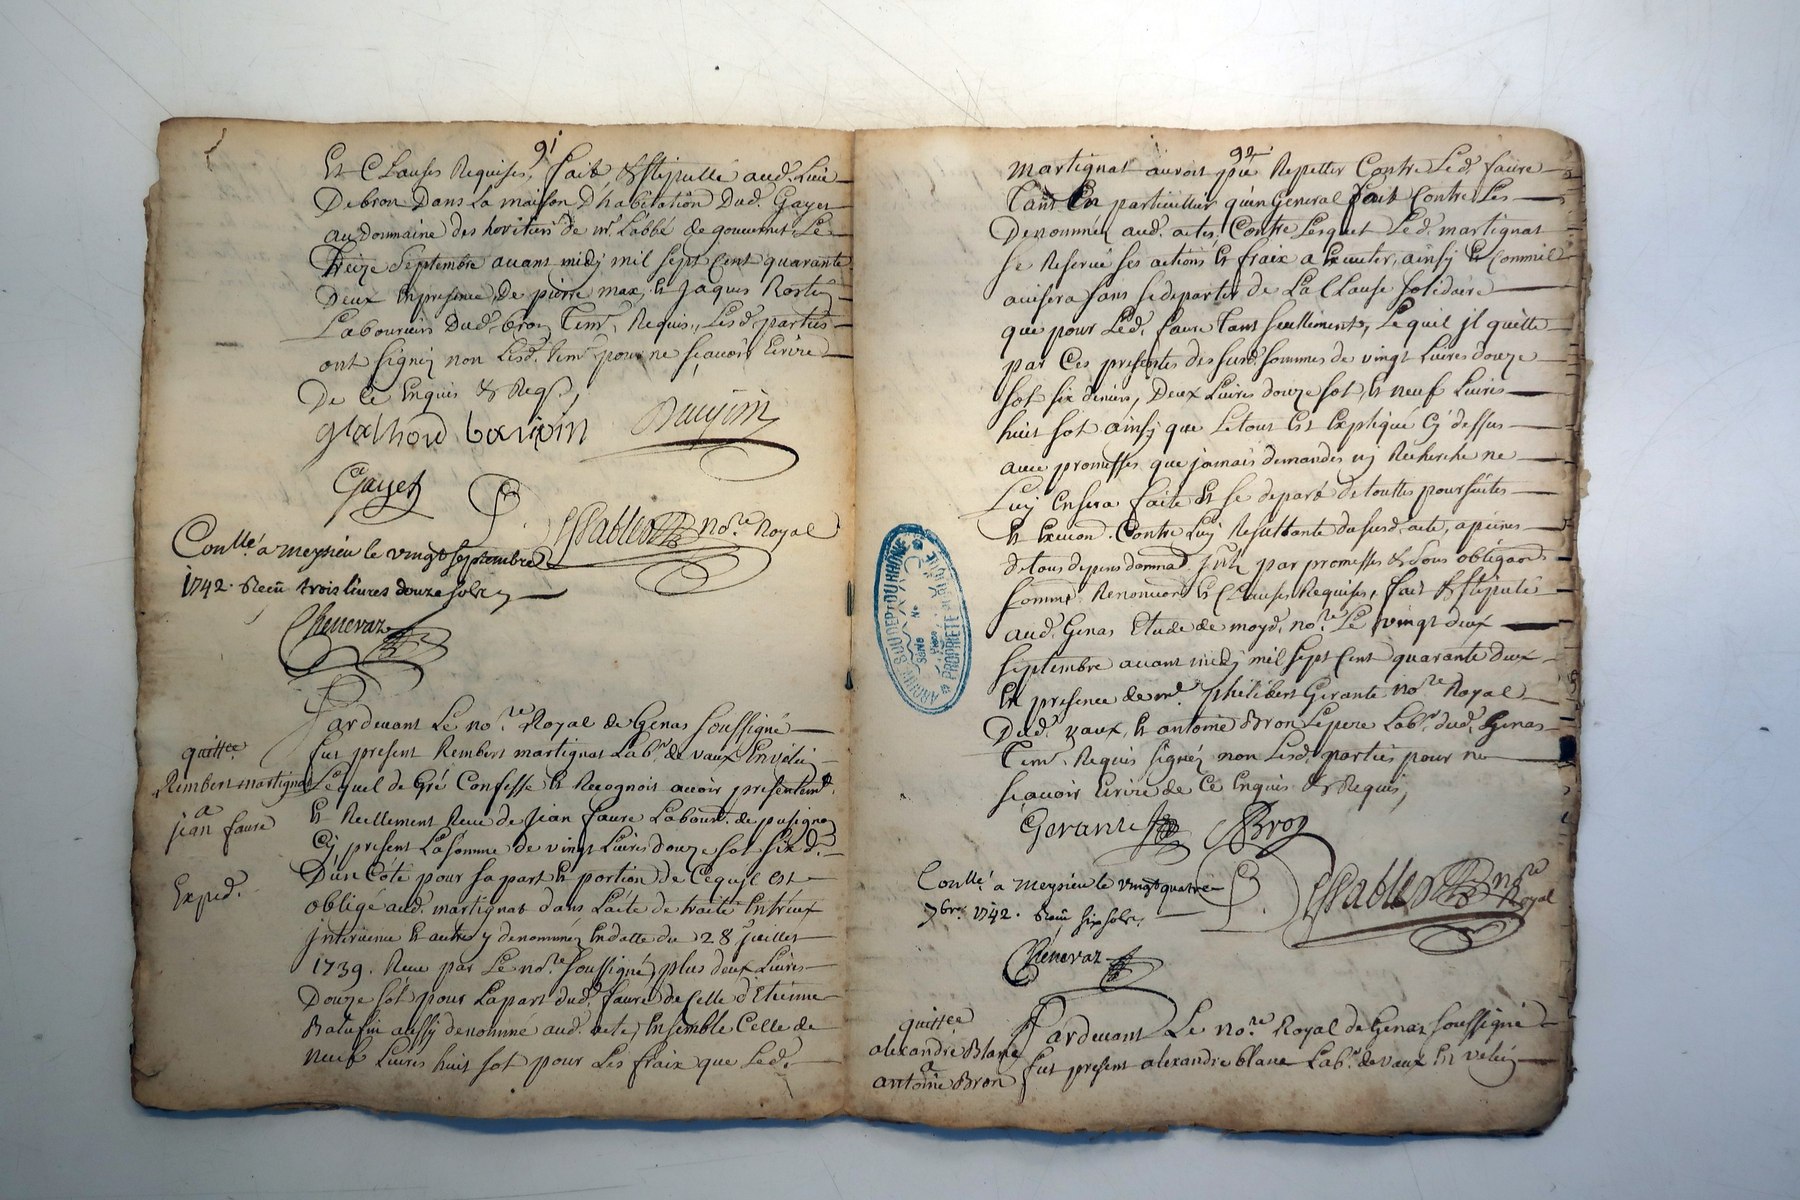 91
Et Clauses Requises, fait & stipullé aud. Lieu
De bron Dans La maison D'habitation Dud. Gayet
au Domaine des heritiers de mr. L'abbé de gouvernet Le
Treize Septembre avant midy mil sept Cent quarante
Deux En presence De pierre max, Et Jaques Rostin
Laboureurs Dud. bron Tem. Requis, Lesd. parties
ont signéz non Lesd. tem. pour ne sçavoir Ecrire
De Ce Enquis & Reqs,
Gayet
no.re Royal
Conllé a Meysieu le vingt septembre
1742. Reçû trois livres douze sols
Chenevaz
Pardevant Le no.re Royal de Genas soussigné
fut present Rembert martignat Lab.r de vaux En vélin
Lequel de Gré Confesse Et Recognoit avoir presentem.t
Et Reellement Receu de Jean faure Labour. de pusignan
Cy present La somme de vingt Livres douze sol six d.
D'une Coté pour sa part Et portion de Ce quil est
obligé aud. martignat dans L'acte de traité Entréux
intervenu Et autre y denomméz En datte du 28 juillet
1739. Receu par Le no.re soussigné, plus deux Livres
Douze sol pour La part dud. faure de Celle d'Etienne
aussy denommé aud. acte, Ensemble Celle de
neuf Livres huit sol pour Les fraix que Led.
quittce
Rembert martignat
a
jean faure
Exped.
92
martignat auroit pû Repetter Contre Led. faure
Tant En particullier qu'en General fait Contre Les
Denomméz aud. actes, Contre Lesquels Led. martignat
se Reserve ses actions Et fraix a Executer, ainsy Et Comm'il
avisera sans se departir de La Clause solidaire
que pour Led. faure Tant seullement, Lequel jl quitte
par Ces presentes des susd. sommes de vingt Livres douze
sol six deniers, Deux Livres douze sol, Et neuf Livres
huit sol ainsy que Le tout Est Expliqué Cy dessus
avec promesses que jamais demandes ny Recherche ne
Luy En sera faite Et se depart de touttes poursuites
Et Execuon. Contre Luy Resultante du susd. acte, a peines
de tous depens dommâ. par promesses & sous obligaons
somms. Renonceons. Et Clauses Requises, fait & stipulé
aud. Genas Etude de moyd. no.re Le vingt deux
septembre avant midy mil sept Cent quarante deux
En presence de m.e philibert Gerante no.re Royal
Dud. vaux, Et antoine Bron Le pere Lab.r dud. Genas
Tem. Requis signéz non Lesd. parties pour ne
sçavoir Ecrire de Ce Enquis & Requis,
Gerante Bron
no.re
Royal
Conllé a Meysieu le vingt quatre
7bre. 1742. Reçû six sols.
Chenevaz
Pardevant Le no.re Royal de Genas soussigné
fut present alexandre blanc Lab.r de vaux En velin
quittce
alexandre Blanc
a
antoine Bron